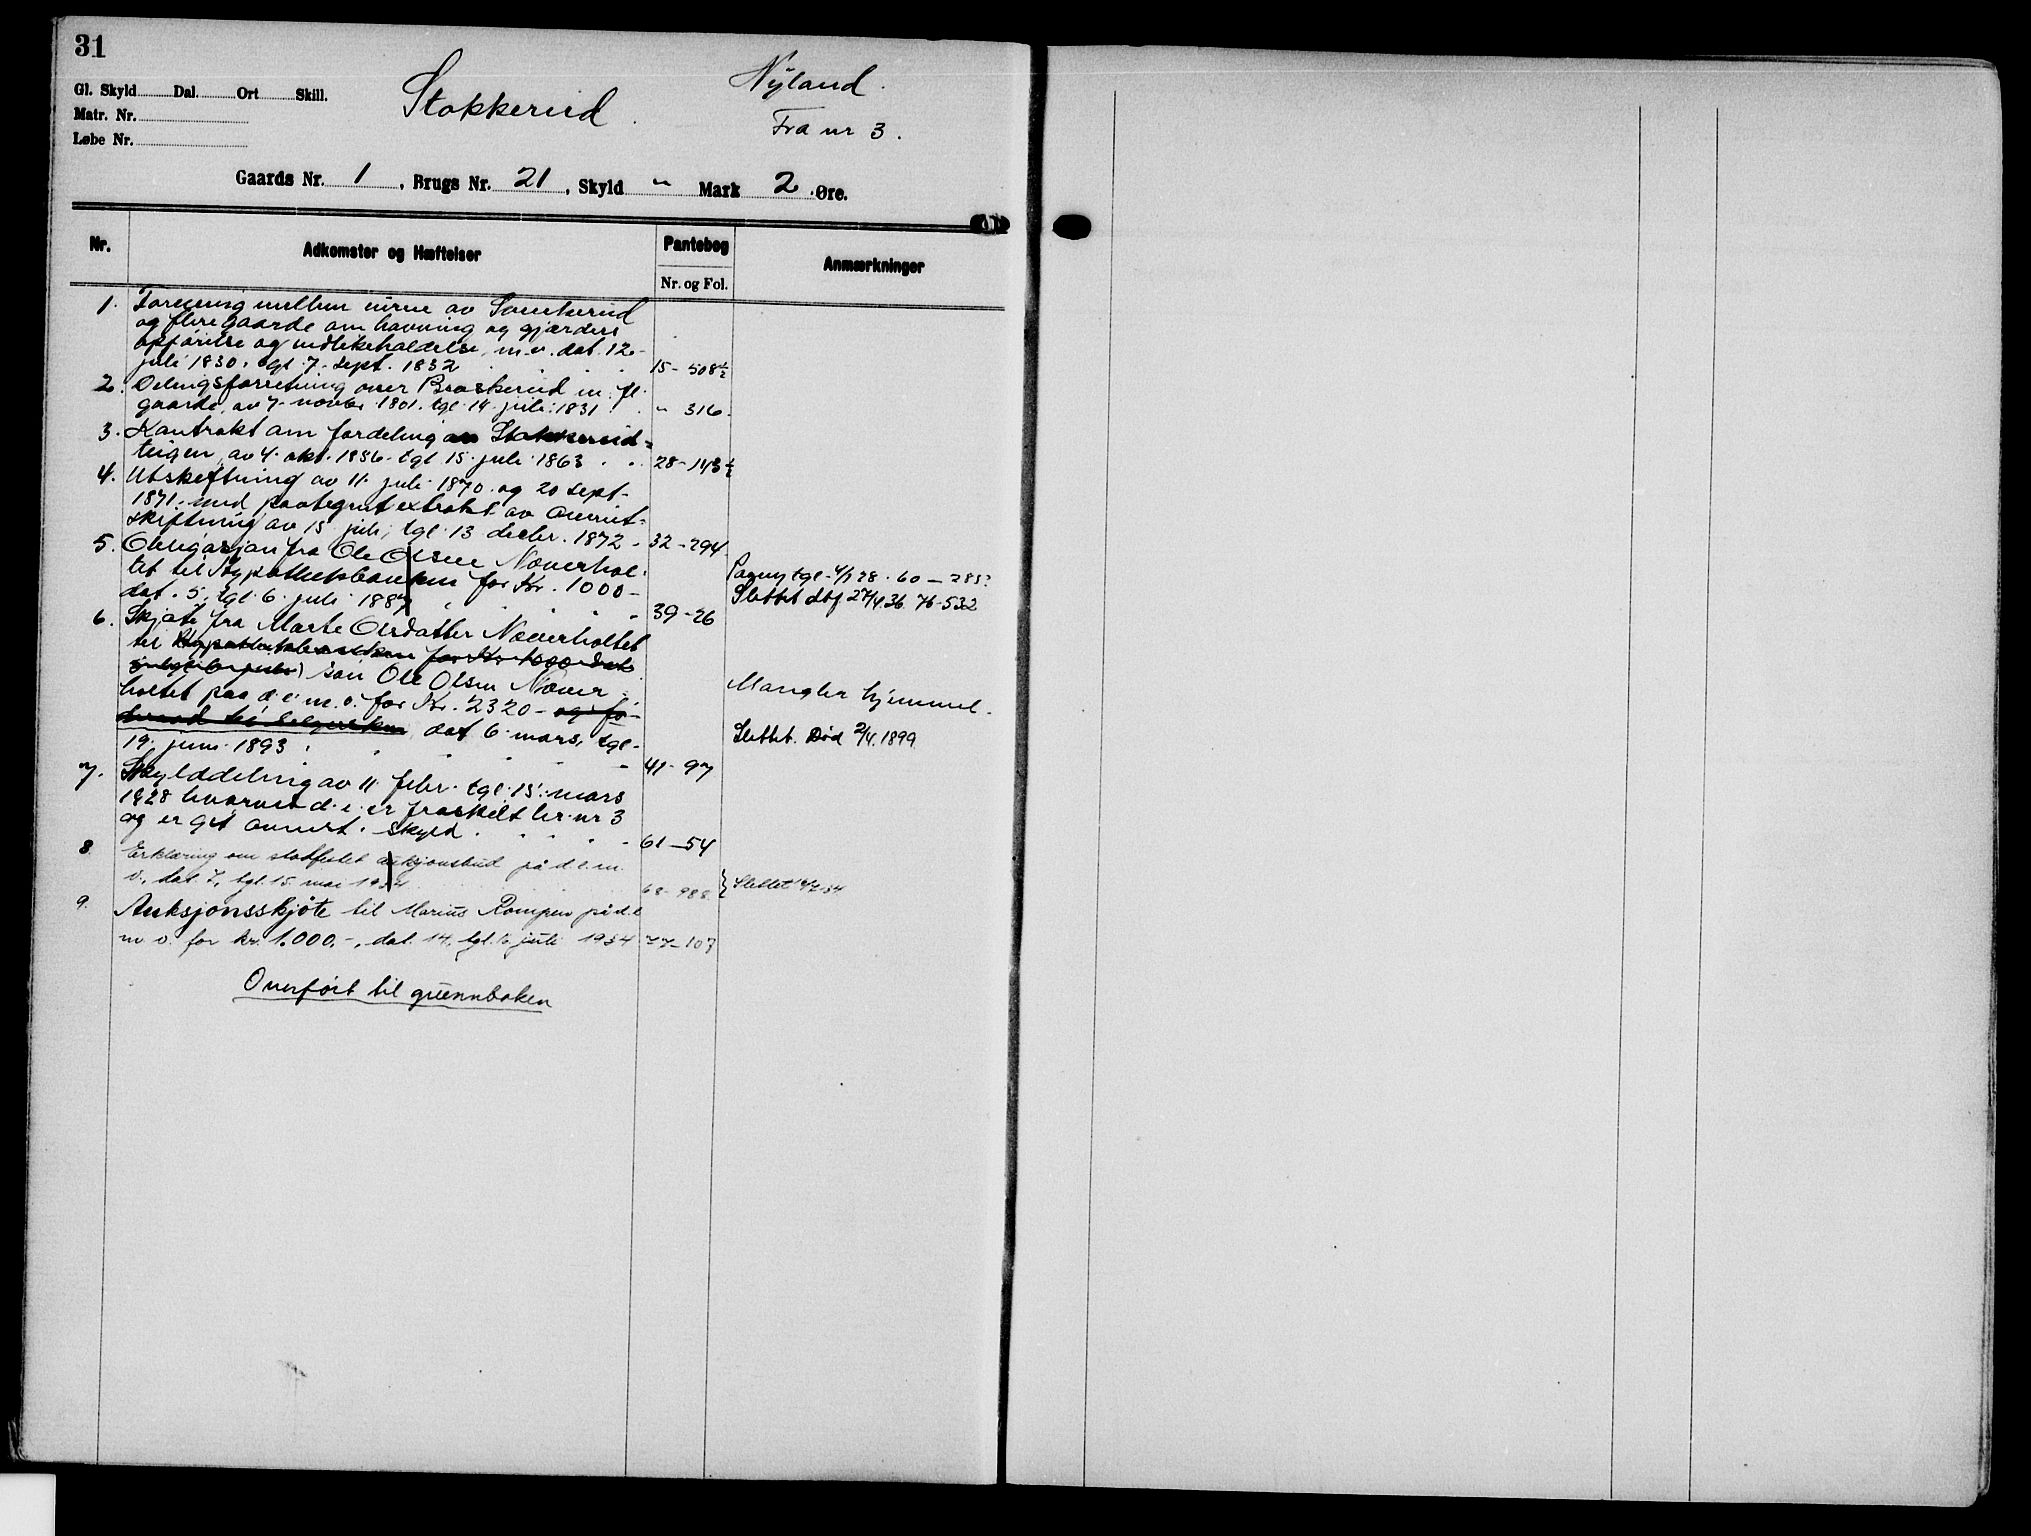 31
Gl. Skyld Dal. Ort Skill.
Matr. Nr.
Løbe Nr.
Stokkerud.
Nyland.
Fra nr 3.
Gaards Nr. 1, Brugs Nr. 21, Skyld " Mark 2 Øre.
Nr. Adkomster og Hæftelser Pantebog Anmærkninger
Nr. og Fol.
1. Forening mellem eierne av
og flere gaarde om havning og gjærders
opførelse og vedlikeholdelse m.v. dat. 12
juli 1830, tgl. 7. sept. 1832 15 - 508½
2. Delingsforretning over Braskerud m. fl.
gaarde, av 7. novbr 1801. tgl. 14. juli 1831. " 316.
3. Kontrakt om fordeling av Stokkerud=
teigen, av 4. okt. 1856. tgl 15. juli 1863 28 - 143½
4. Utskiftning av 11. juli 1870. og 20 sept.
1871. med paategnet extrakt av overut=
skiftning av 15 juli, tgl. 13 decbr. 1872 - 32 - 294
5. Obligasjon fra Ole Olsen Næverhol=
tet til Hypothekbanken for Kr. 1000 -
dat. 5, tgl. 6. juli 1887 39 - 26
Pagny tgl. 4/7 28. 60 - 285?
Slettet dbf 27/4.36. 76-532
6. Skjøte fra Marte Olsdatter Næverholtet
til Hypothekbanken for Kr 1000 dat.
5 tgl. 6 juli) søn Ole Olsen Næver=
holtet paa d.e. m.v. for Kr. 2320 - og fø-
deraad til selgersken, dat 6. mars, tgl.
19. juni 1893 41 - 97
Mangler hjemmel.
Slettet. Død 2/4.1899
7. Skylddeling av 11. febr. tgl. 15. mars
1928 hvorved d.e. er fraskilt br. nr 3
og er git anført skyld. 61 - 54
8. Erklæring om stadfestet auksjonsbud på d.e. m.
v., dat. 7, tgl. 15. mai 1934 68 - 988. Slettet 16/7 34
9. Auksjonsskjøte til Marius Rompen på d.e
m v. for kr. 1.000.-, dat. 14, tgl. 16 juli 1934 77-107
Overført til grunnboken